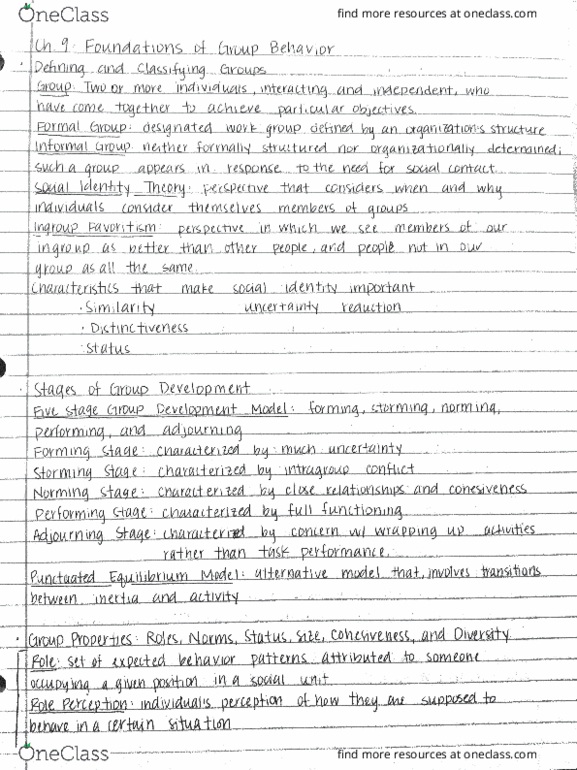 OneClass find more resources at oneclass.com
Ch. 9: Foundations of Group Behavior
· Defining and Classifying Groups
Group: Two or more individuals, interacting and independent, who
have come together to achieve particular objectives.
Formal Group: designated work group defined by an organization's structure
Informal Group: neither formally structured nor organizationally determained;
such a group appears in response to the need for social contact.
Social Identity Theory: perspective that considers when and why
individuals consider themselves members of groups
Ingroup Favoritism: perspective in which we see members of our
ingroup as better than other people, and people not in our
group as all the same.
Characteristics that make social identity important
· Similarity uncertainty reduction
· Distinctiveness
· Status
· Stages of Group Development
Five Stage Group Development Model: forming, storming, norming,
performing, and adjourning
Forming Stage: characterized by much uncertainty
Storming Stage: characterized by intragroup conflict
Norming Stage: characterized by close relationships and cohesiveness
Performing Stage: characterized by full functioning
Adjourning Stage: characterized by concern w/ wrapping up activities
rather than task performance.
Punctuated Equilibrium Model: alternative model that, involves transitions
between inertia and activity
· Group Properties: Roles, Norms, Status, Size, Cohesiveness, and Diversity
Role: set of expected behavior patterns attributed to someone
occupying a given position in a social unit
Role Perception: individual's perception of how they are supposed to
behave in a certain situation
OneClass find more resources at oneclass.com